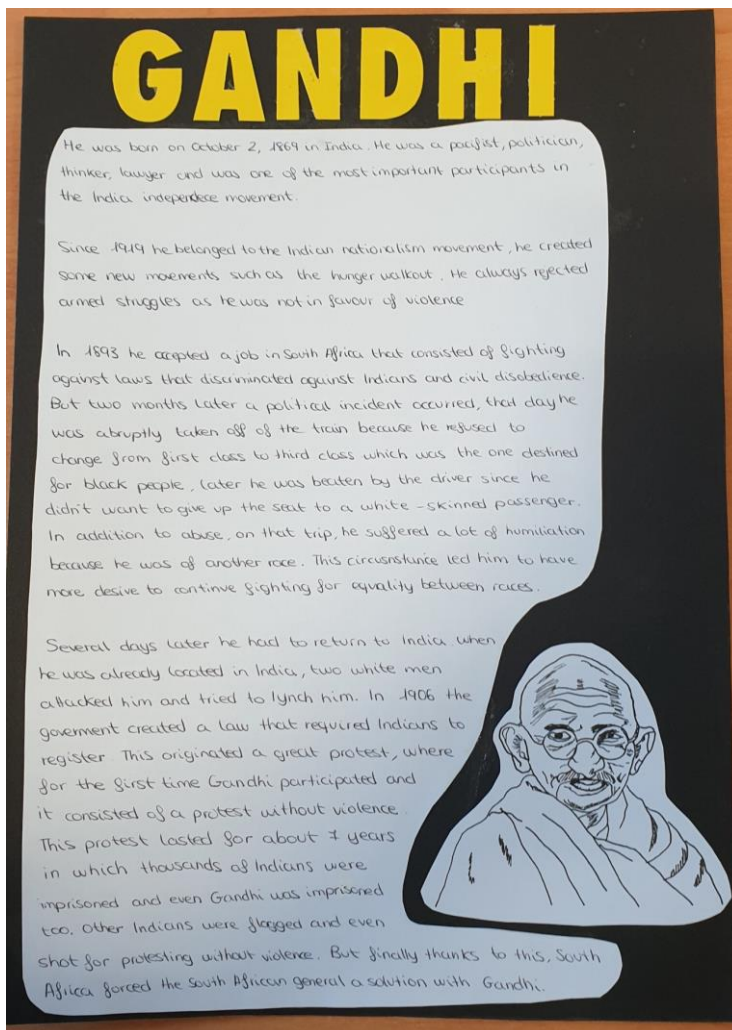 GANDHI
He was born on October 2, 1869 in India. He was a pacifist, politician,
thinker, lawyer and was one of the most important participants in
the India independece movement.
Since 1919 he belonged to the Indian nationalism movement, he created
some new movements such as the hunger walkout. He always rejected
armed struggles as he was not in favour of violence
In 1893 he accepted a job in South Africa that consisted of fighting
against laws that discriminated against Indians and civil disobedience.
But two months later a political incident occurred, that day he
was abruptly taken off of the train because he refused to
change from first class to third class which was the one destined
for black people, later he was beaten by the driver since he
didn't want to give up the seat to a white-skinned passenger.
In addition to abuse, on that trip, he suffered a lot of humiliation
because he was of another race. This circusnstance led him to have
more desive to continue fighting for equality between races.
Several days later he had to return to India when
he was already located in India, two white men
attacked him and tried to lynch him. In 1906 the
goverment created a law that required Indians to
register. This originated a great protest, where
for the first time Gandhi participated and
it consisted of a protest without violence.
This protest lasted for about 7 years
in which thousands of Indians were
imprisoned and even Gandhi was imprisoned
too. Other Indians were flogged and even
shot for protesting without violence. But finally thanks to this, South
Africa forced the South African general a solution with Gandhi.